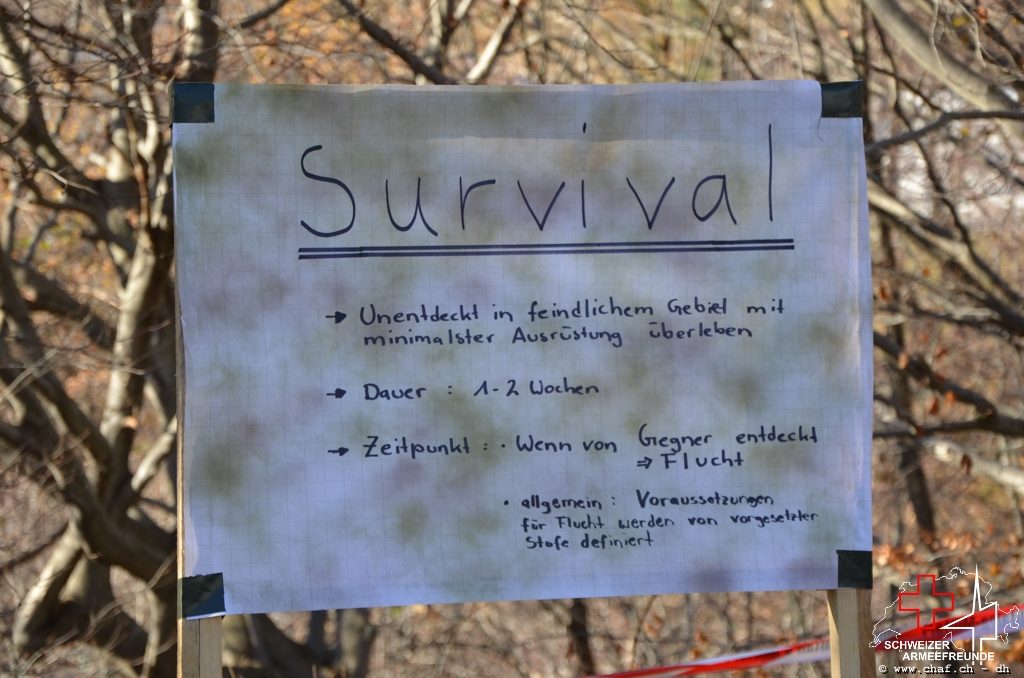 Survival
→ Unentdeckt in feindlichem Gebiet mit
minimalster Ausrüstung überleben
→ Dauer : 1-2 Wochen
→ Zeitpunkt : · Wenn von Gegner entdeckt
⇒ Flucht
· allgemein : Voraussetzungen
für Flucht werden von vorgesetzter
Stufe definiert
SCHWEIZER
ARMEEFREUNDE
© www.chaf.ch - dh